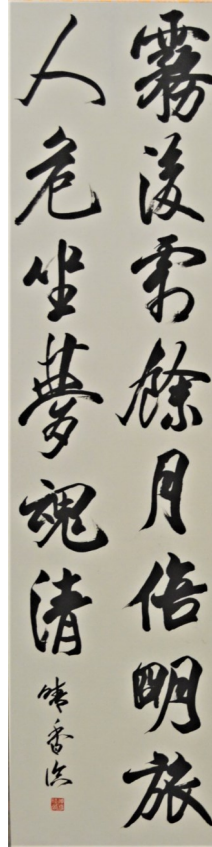 霧後雪餘月倍明旅
人危坐夢魂清
晴香臨